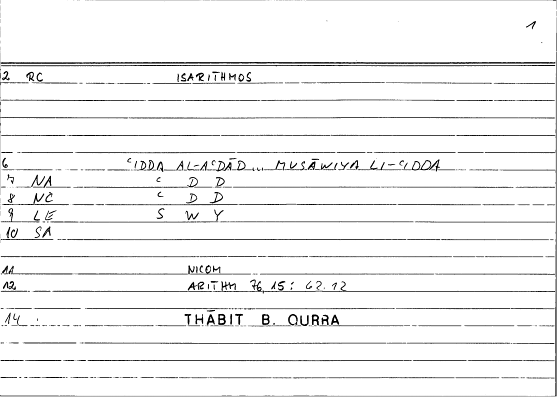 1
2 RC ISARITHMOS
6 ᶜIDDA AL-AᶜDĀD... MUSĀWIYA LI-ᶜIDDA
7 NA ᶜ D D
8 NC ᶜ D D
9 LE S W Y
10 SA
11 NICOM
12 ARITHM 76,15: 62.12
14 THĀBIT B. QURRA